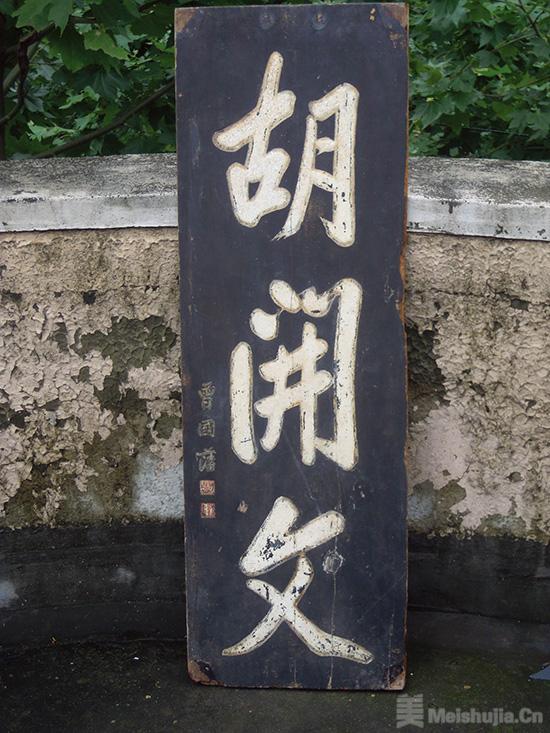 胡開文
曾國藩
美 Meishujia.Cn